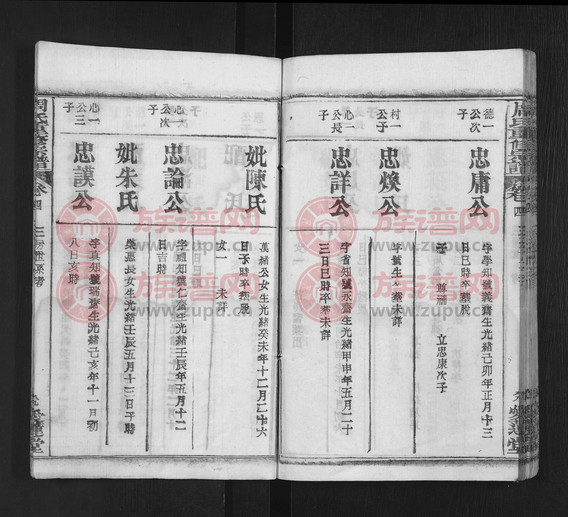 德一
公次
子
忠庸公
字學知號義齋生光緒己卯年正月十三
日巳時卒葬脫
子
尊彌 立忠康次子
村一
公子
忠煥公
字號生卒葬未詳
心一
公長
子
忠詳公
字省知號永齋生光緒甲申年五月二十
三日巳時卒葬未詳
妣陳氏
萬緒公女生光緒癸未年十二月二十六
日子時卒葬脫
女一 未詳
心一
公次
子
忠論公
字禮知號仁齋生光緒壬辰年五月十二
日吉時
妣朱氏
榮恩長女生光緒壬辰五月十三日子時
心一
公三
子
忠謨公
字眞知號瑞齋生光緒己亥年十一月初
八日亥時
周氏重修宗譜
卷四
族谱网
www.zupu.cn